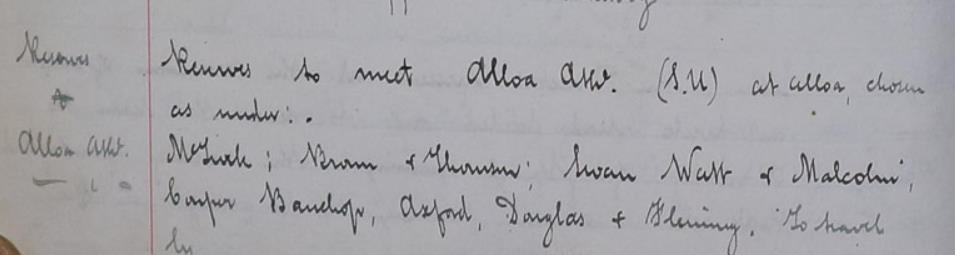 Reserves
Reserves to meet Alloa Ath. (S.U) at Alloa, chosen
as under:.
Alloa Ath.
McTurk; Brown & Thomson; Swan Watt & Malcolm;
Bauchop, Oxford, Douglas & Fleming. To travel
by